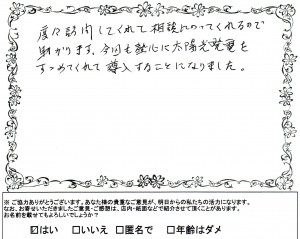 度々訪問してくれて相談にのってくれるので
助かります、今回も熱心に太陽光発電を
すすめてくれて導入することになりました。
※ご協力ありがとうございます。あなた様の貴重なご意見が、明日からの私たちの活力になります。
なお、お寄せいただきましたご意見・ご感想は、店内・紙面などで紹介させて頂くことがあります。
お名前を載せてもよろしいでしょうか?
☑はい □いいえ □匿名で □年齢はダメ